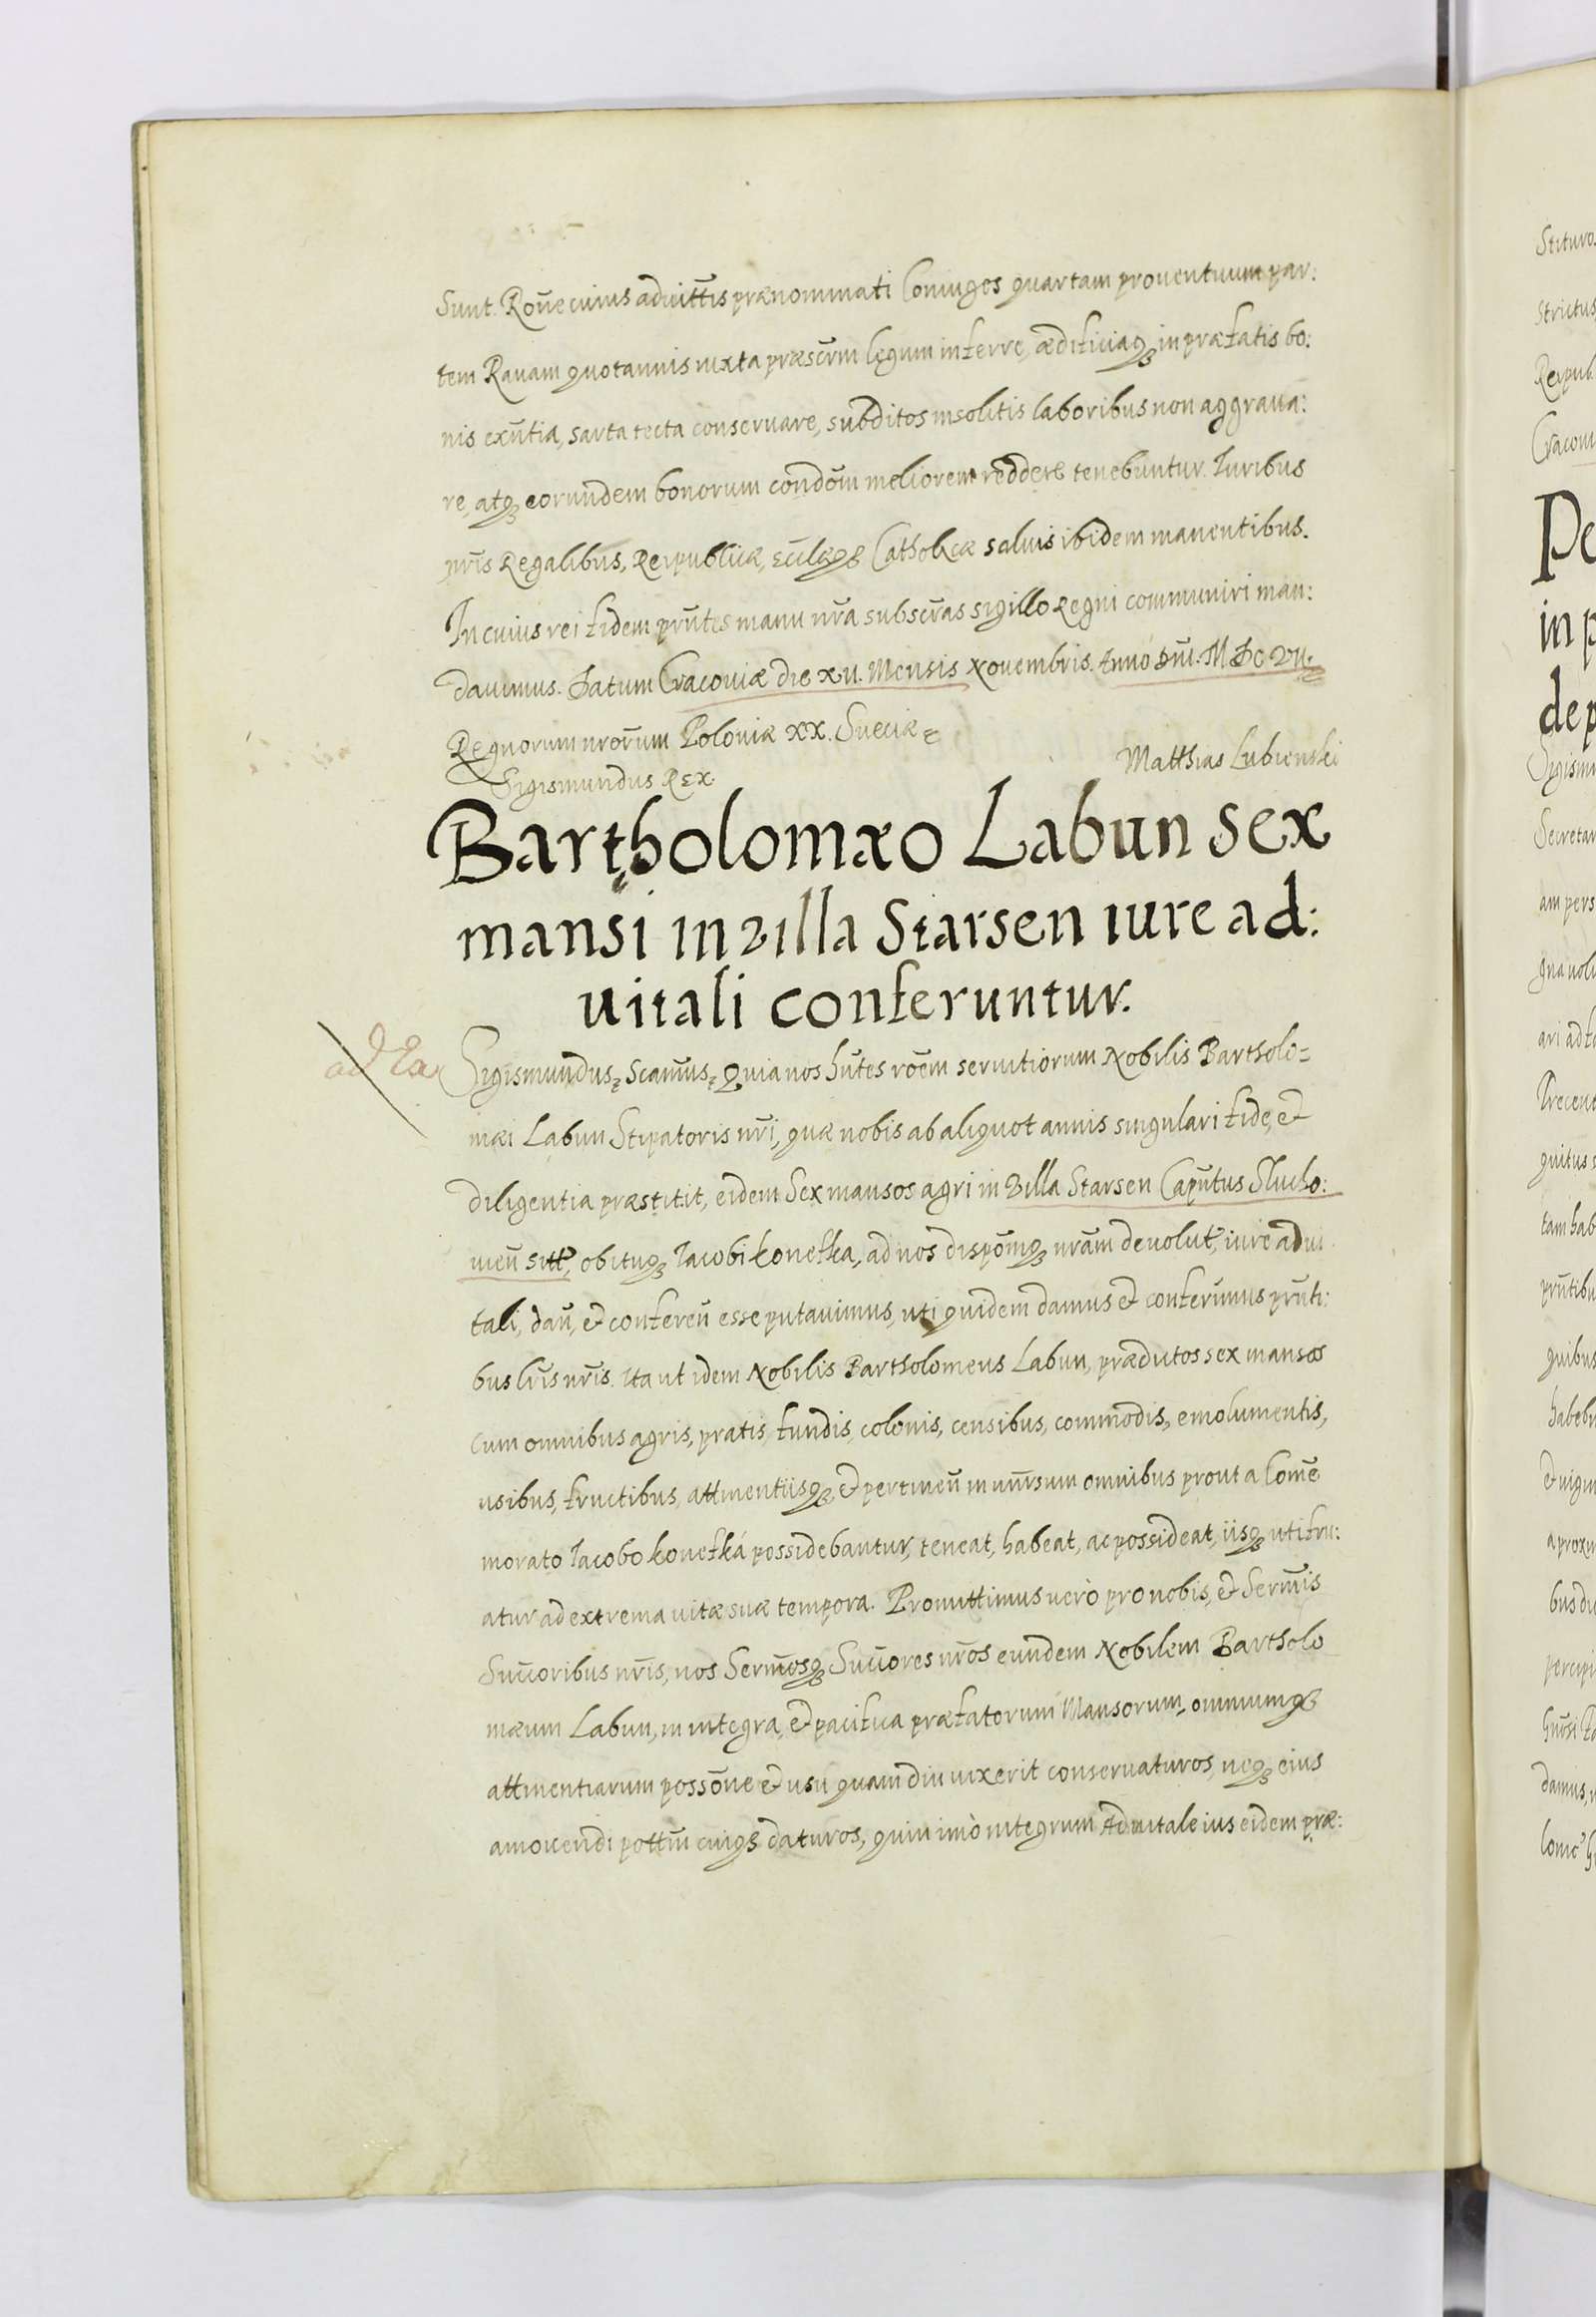 Sunt. Rōne cuius aduittis prænominati Coniuges quartam prouentuum par:
tem Rauam quotannis iuxta præscrm legum inferre, ædificiaq in præfatis bo:
nis exñtia, sarta tecta conseruare, subditos insolitis laboribus non aggraua:
re, atq eorundem bonorum condōm meliorem reddere tenebuntur. Iuribus
pris Regalibus, Reipublicæ, Ecclæq Catholicæ saluis ibidem manentibus.
In cuius rei fidem pñtes manu nra subscras sigillo Regni communiri man:
dauimus. Datum Cracouiæ die XV. Mensis Nouembris. Anno Dni. M DC VII.
Regnorum nrorum Poloniæ XX. Sueciæ
Sigismundus Rex.
Matthias Lubienski
Bartholomæo Labun sex
mansi in villa Starsen iure ad:
uitali conferuntur.
ad
Sigismundus, Scamus, Quia nos hñtes rōem seruitiorum Nobilis Bartholo=
mæi Labun Stipatoris nri, quæ nobis ab aliquot annis singulari fide, et
diligentia præstitit, eidem Sex mansos agri in Villa Starsen Capñtus Slucho:
uieñ sitt, obituq Iacobi Konefka, ad nos dispōmq nram deuolut, iure adui
tali, dañ, et confereñ esse putauimus, uti quidem damus et conferimus pñti:
bus lris nris. Ita ut idem Nobilis Bartholomeus Labun, prædictos sex mansos
cum omnibus agris, pratis, fundis, colonis, censibus, commodis, emolumentis,
usibus, fructibus, attinentiisq, et pertineñ in unrsum omnibus prout a Come
morato Iacobo Konefká possidebantur, teneat, habeat, ac possideat, iisq utifru:
atur ad extrema uitæ suæ tempora. Promittimus uerò pro nobis, et Sermis
Succoribus nris, nos Sermosq Succores nros eundem Nobilem Bartholo
mæum Labun, in integra, et pacifica præfatorum Mansorum, omniumq
attinentiarum possōne et usu quam diu uixerit conseruaturos, neq eius
amouendi pottm cuiq daturos, quin imò integrum Aduitale ius eidem præ: